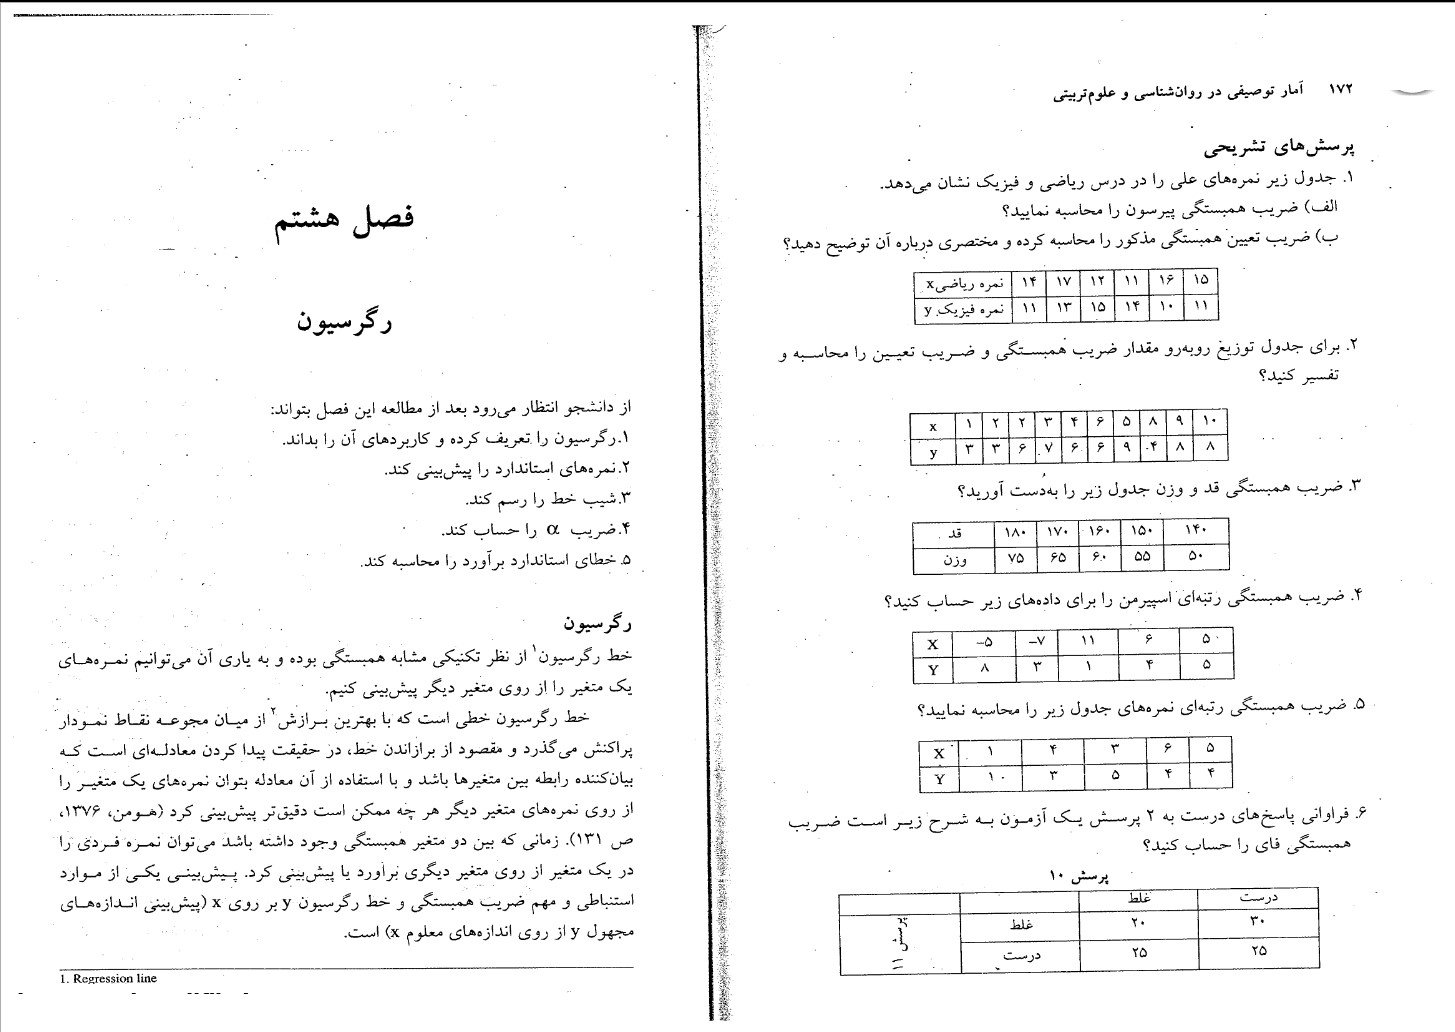 ۱۷۲ آمار توصیفی در روان‌شناسی و علوم‌تربیتی
پرسش‌های تشریحی
۱. جدول زیر نمره‌های علی را در درس ریاضی و فیزیک نشان می‌دهد.
الف) ضریب همبستگی پیرسون را محاسبه نمایید؟
ب) ضریب تعیین همبستگی مذکور را محاسبه کرده و مختصری درباره آن توضیح دهید؟
نمره ریاضی x ۱۴ ۱۷ ۱۲ ۱۱ ۱۶ ۱۵
نمره فیزیک y ۱۱ ۱۳ ۱۵ ۱۴ ۱۰ ۱۱
۲. برای جدول توزیع روبه‌رو مقدار ضریب همبستگی و ضریب تعیین را محاسبه و
تفسیر کنید؟
x ۱ ۲ ۲ ۳ ۴ ۶ ۵ ۸ ۹ ۱۰
y ۳ ۳ ۶ ۷ ۶ ۶ ۹ ۴ ۸ ۸
۳. ضریب همبستگی قد و وزن جدول زیر را به‌دست آورید؟
قد ۱۸۰ ۱۷۰ ۱۶۰ ۱۵۰ ۱۴۰
وزن ۷۵ ۶۵ ۶۰ ۵۵ ۵۰
۴. ضریب همبستگی رتبه‌ای اسپیرمن را برای داده‌های زیر حساب کنید؟
X –۵ –۷ ۱۱ ۶ ۵
Y ۸ ۳ ۱ ۴ ۵
۵. ضریب همبستگی رتبه‌ای نمره‌های جدول زیر را محاسبه نمایید؟
X ۱ ۴ ۳ ۶ ۵
Y ۱۰ ۳ ۵ ۴ ۴
۶. فراوانی پاسخ‌های درست به ۲ پرسش یک آزمون به شرح زیر است ضریب
همبستگی فای را حساب کنید؟
پرسش ۱۰
غلط درست
پرسش ۱۱ غلط ۲۰ ۳۰
درست ۲۵ ۲۵
فصل هشتم
رگرسیون
از دانشجو انتظار می‌رود بعد از مطالعه این فصل بتواند:
۱.رگرسیون را تعریف کرده و کاربردهای آن را بداند.
۲.نمره‌های استاندارد را پیش‌بینی کند.
۳.شیب خط را رسم کند.
۴.ضریب α را حساب کند.
۵.خطای استاندارد برآورد را محاسبه کند.
رگرسیون
خط رگرسیون۱ از نظر تکنیکی مشابه همبستگی بوده و به یاری آن می‌توانیم نمره‌های
یک متغیر را از روی متغیر دیگر پیش‌بینی کنیم.
خط رگرسیون خطی است که با بهترین برازش۲ از میان مجوعه نقاط نمودار
پراکنش می‌گذرد و مقصود از برازاندن خط، در حقیقت پیدا کردن معادله‌ای است که
بیان‌کننده رابطه بین متغیرها باشد و با استفاده از آن معادله بتوان نمره‌های یک متغیر را
از روی نمره‌های متغیر دیگر هر چه ممکن است دقیق‌تر پیش‌بینی کرد (هومن، ۱۳۷۶،
ص ۱۳۱). زمانی که بین دو متغیر همبستگی وجود داشته باشد می‌توان نمره فردی را
در یک متغیر از روی متغیر دیگری برآورد یا پیش‌بینی کرد. پیش‌بینی یکی از موارد
استنباطی و مهم ضریب همبستگی و خط رگرسیون y بر روی x (پیش‌بینی اندازه‌های
مجهول y از روی اندازه‌های معلوم x) است.
1. Regression line